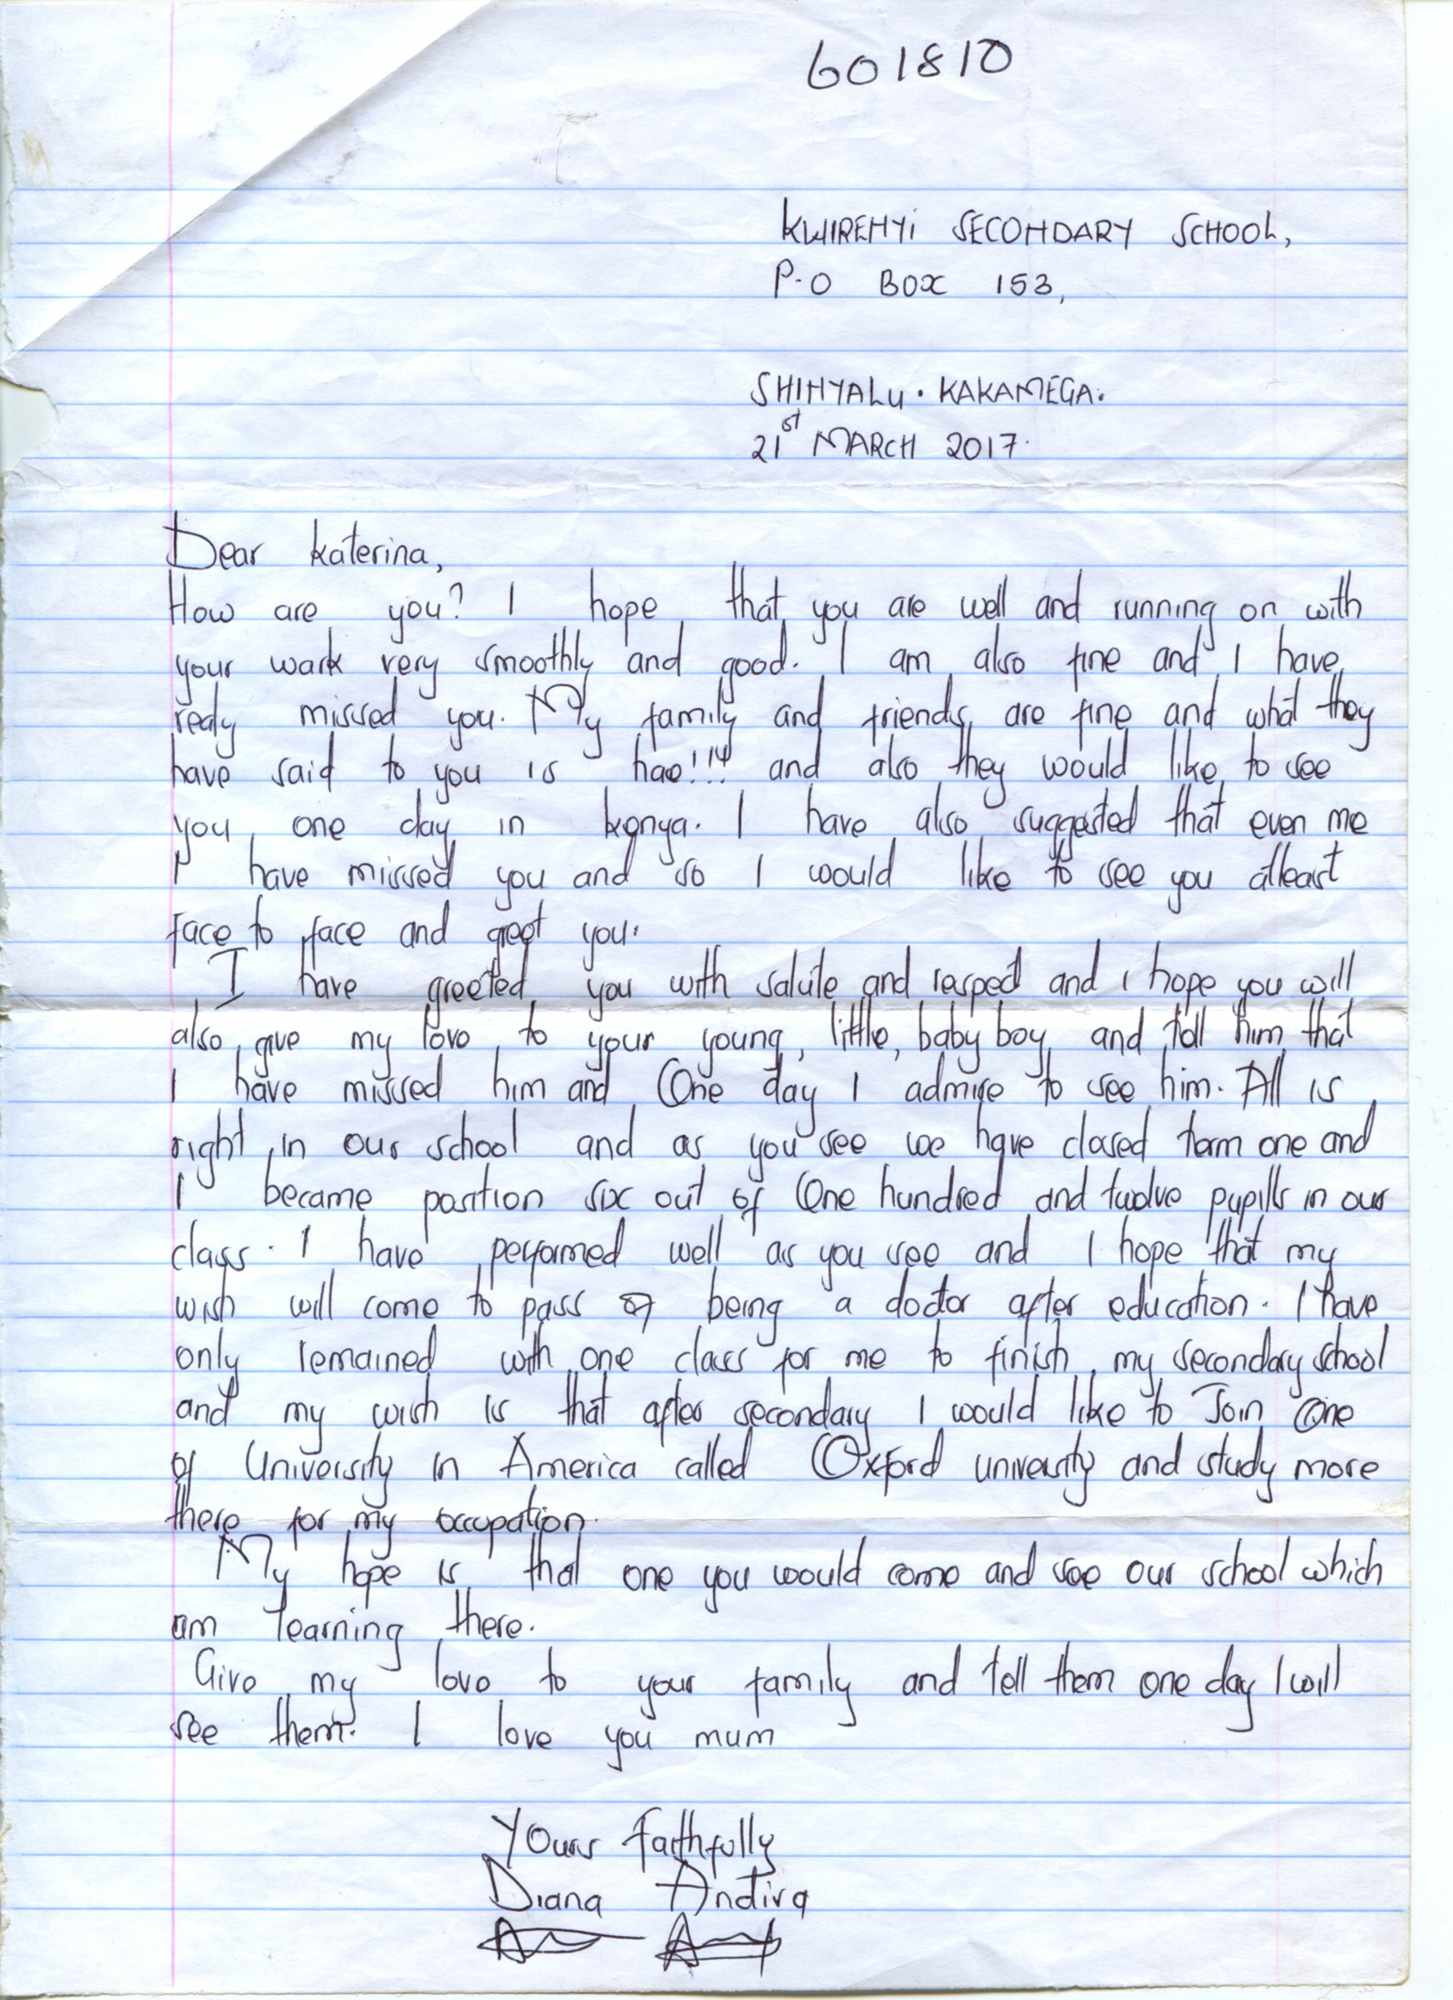 601810
KWIRENYi SECONDARY SCHOOL,
P.O BOX 153,
SHINYALU. KAKAMEGA.
21st MARCH 2017.
Dear Katerina,
How are you? I hope that you are well and running on with
your work very smoothly and good. I am also fine and I have
realy missed you. My family and friends are fine and what they
have said to you is and also they would like to see
you one day in kenya. I have also suggested that even me
I have missed you and so I would like to see you atleast
face to face and greet you.
I have greeted you with salute and respect and I hope you will
also give my love to your young, little, baby boy and tell him that
I have missed him and One day I admire to see him. All is
right in our school and as you see we have closed term one and
I became position six out of One hundred and twelve pupils in our
class. I have performed well as you see and I hope that my
wish will come to pass of being a doctor after education. I have
only remained with one class for me to finish my secondary school
and my wish is that after secondary I would like to Join One
of University in America called Oxford university and study more
there for my occupation.
My hope is that one you would come and see our school which
am learning there.
Give my love to your family and tell them one day I will
see them. I love you mum
Yours Faithfully
Diana Andiva